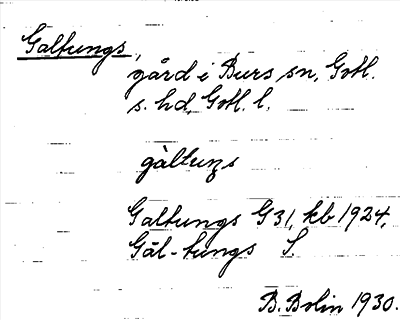 Galtungs,
gård i Burs sn, Gotl.
s. hd, Gotl. l.
gàltuŋs
Galtungs G31, kb 1924,
Gål-tungs S.
B. Bolin 1930.